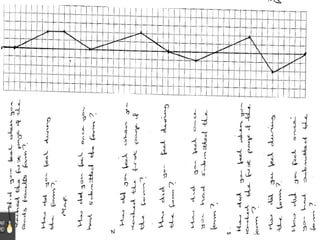 How did you feel when you
reached the first page of the
Sands family form?
How did you feel during
the form?
Map
How did you feel once you
had submitted the form?
2
How did you feel when you
reached the first page of
the form?
How did you feel during
the form?
How did you feel once
you had submitted the
form?
3
How did you feel when you
reached the first page of the
form?
How did you feel during
the form?
How did you feel once
you had submitted the
form?